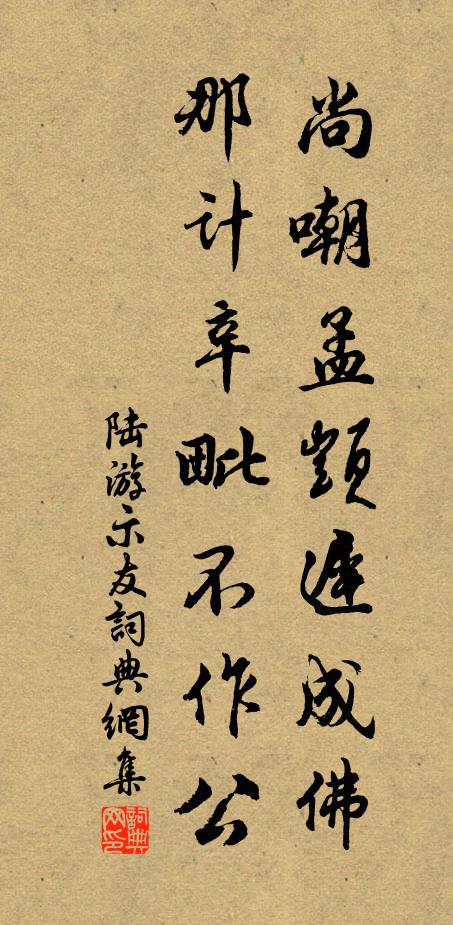 尚嘲孟顗遲成佛
那計辛毗不作公
陸游示友詞典網集
詞典網印